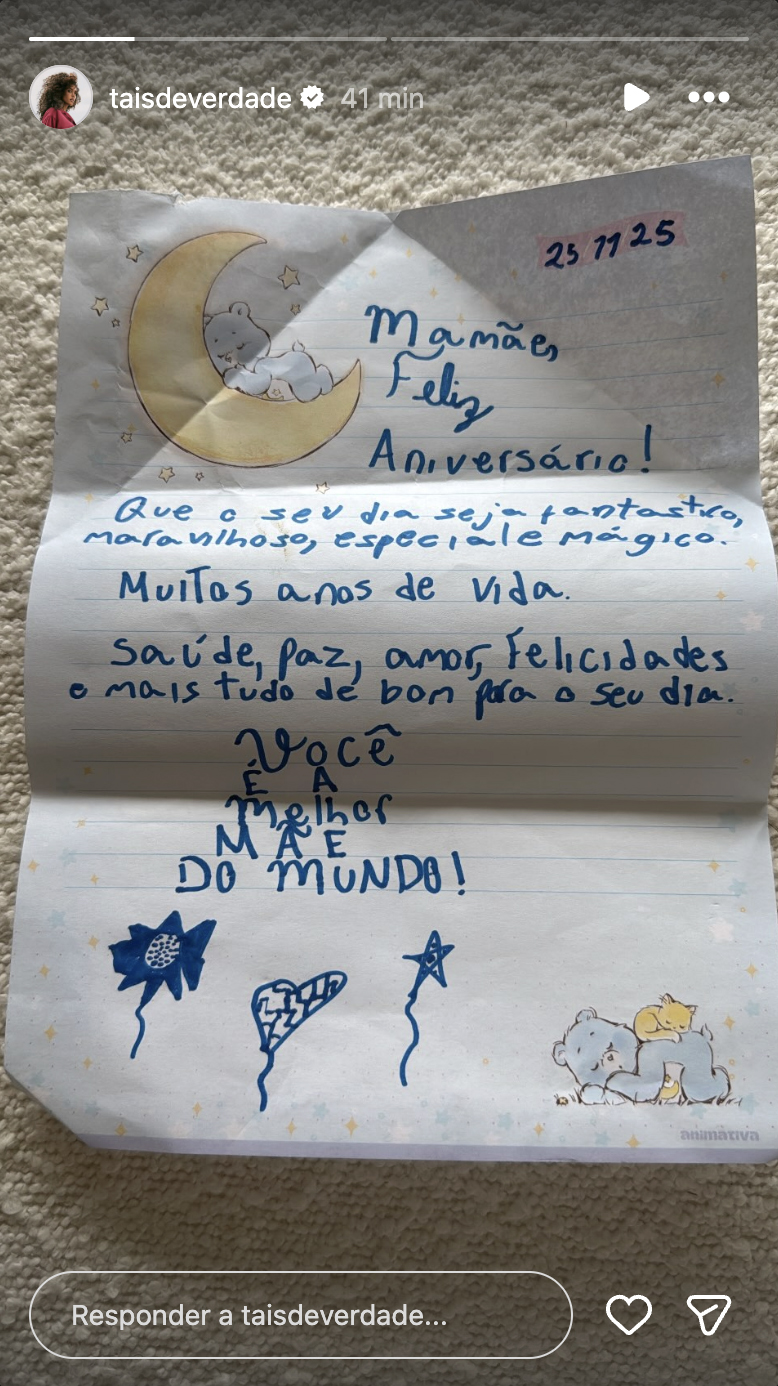 taisdeverdade 41 min
25 11 25
Mamãe,
Feliz
Aniversário!
Que o seu dia seja fantastico,
maravilhoso, especial e mágico.
Muitos anos de vida.
Saúde, paz, amor, Felicidades
e mais tudo de bom para o seu dia.
Você
É A
Melhor
MÃE
DO MUNDO!
animativa
Responder a taisdeverdade...